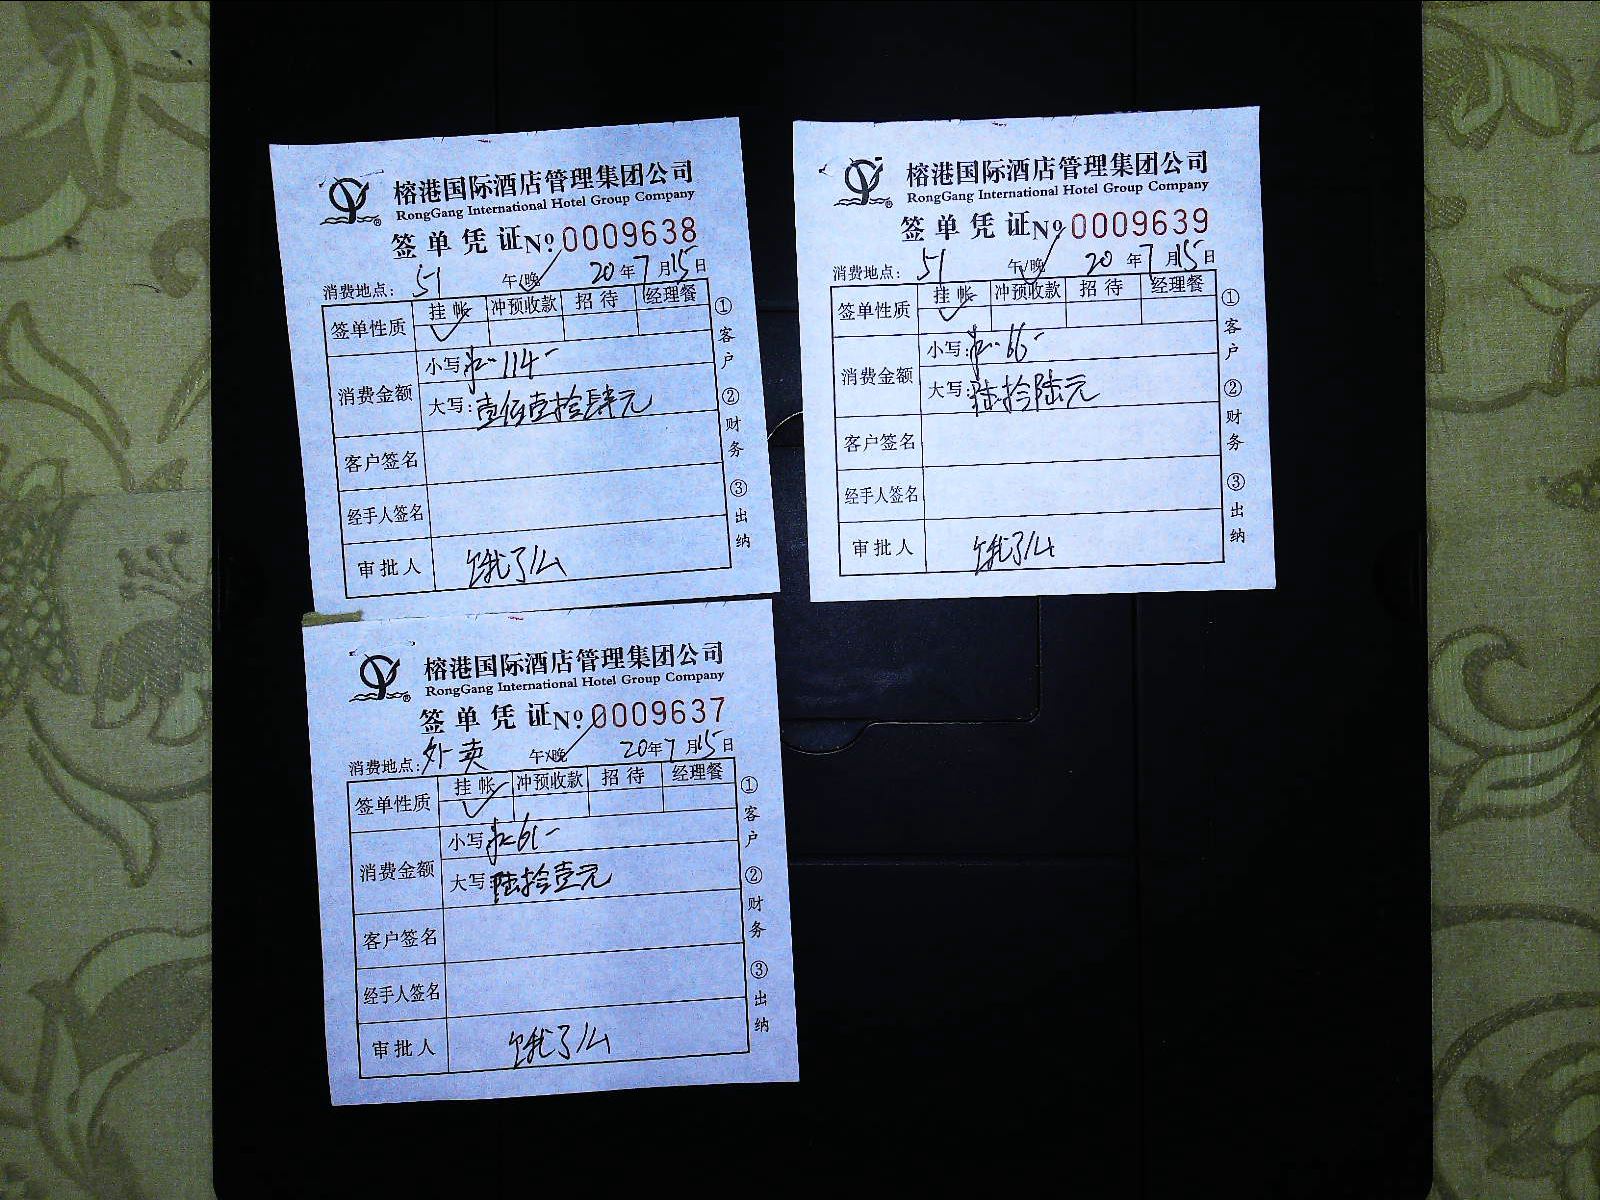 榕港国际酒店管理集团公司
RongGang International Hotel Group Company
签单凭证 Nº 0009638
消费地点: 51 午/晚 20年7月15日
签单性质 挂帐 冲预收款 招待 经理餐
消费金额 小写: 114-
大写: 壹佰壹拾肆元
客户签名
经手人签名
审批人 饿了么
①客户 ②财务 ③出纳
榕港国际酒店管理集团公司
RongGang International Hotel Group Company
签单凭证 Nº 0009639
消费地点: 51 午/晚 20年7月15日
签单性质 挂帐 冲预收款 招待 经理餐
消费金额 小写: 66-
大写: 陆拾陆元
客户签名
经手人签名
审批人 饿了么
①客户 ②财务 ③出纳
榕港国际酒店管理集团公司
RongGang International Hotel Group Company
签单凭证 Nº 0009637
消费地点: 外卖 午/晚 20年7月15日
签单性质 挂帐 冲预收款 招待 经理餐
消费金额 小写: 61-
大写: 陆拾壹元
客户签名
经手人签名
审批人 饿了么
①客户 ②财务 ③出纳